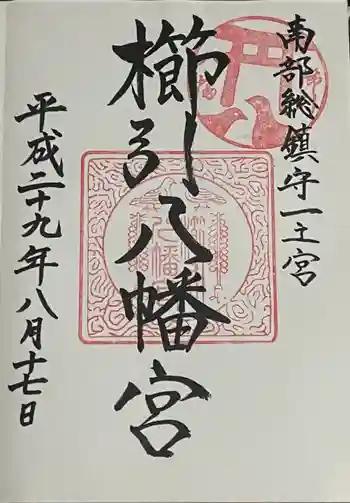 南部総鎮守一之宮
櫛引八幡宮
平成二十九年八月十七日